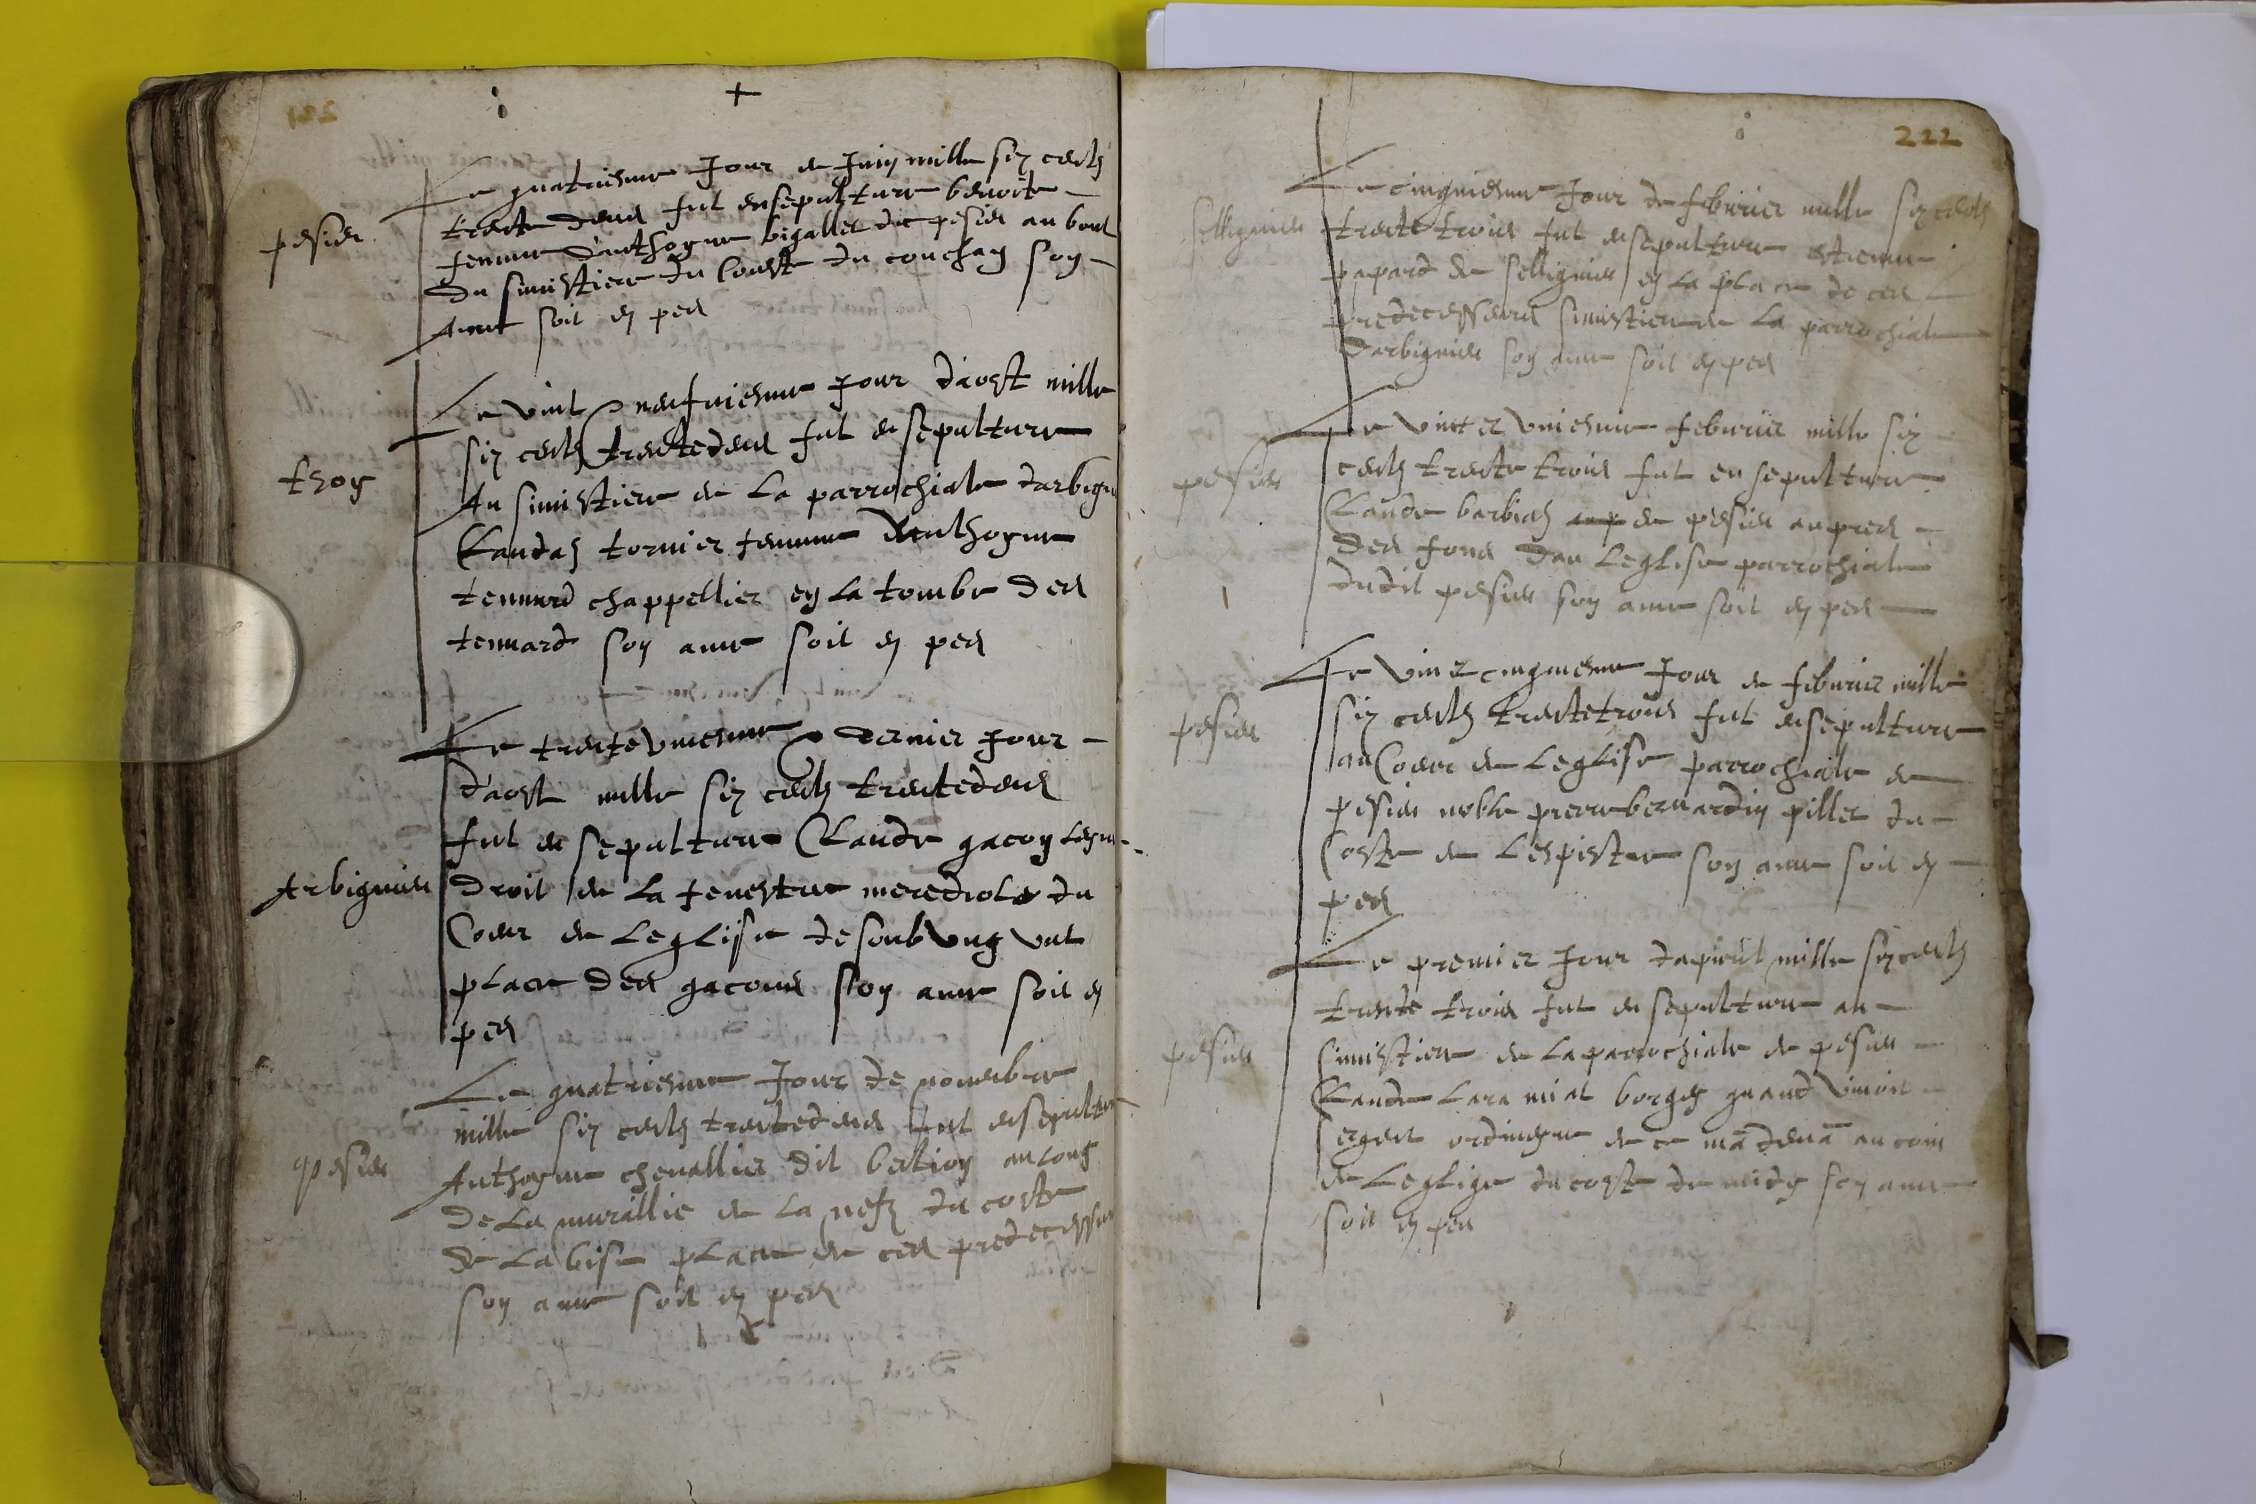 +
pesieu
Le quatriesme Jour de Juin mille six cents
trente deus fut ensepulture benoite
femme d'anthoyne bigallet de pesieu au bout
du simistiere du Couste du couchan son
Ame soit en pes
thoy
Le vint neufviesme Jour d'aost mille
six cents trentedeus fut ensepulture
Au simistiere de La parrochiale darbigni
Claudaz tornier femme d'anthoyne
tennard chappellier en la tombe des
tennard son ame soit en pes
Arbignieu
Le trenteuniesme dernier Jour
d'aost mille six cents trentedeus
fut ensepulture Claude gacon
droit de La fenestre merediole du
Coeur de Leglise desoub ung
place des gacons son ame soit en
pes
pesieu
Le quatriesme Jour de novembre
mille six cents trentedeus fut ensepulture
Anthoyne chevallier dit bertion au long
de La murallie de La nefz du coste
de La bise place de ces predecesseur
son ame soit en pes
222
sellignieu
Le cinquiesme Jour de febvrier mille six cents
trente trois fut ensepulture estienne
papard de sellignieu en La place de ces
predecesseurs simistiere de La parrochiale
darbignieu son ame soit en pes
pesieu
Le vintet uniesme febvrier mille six
cents trente trois fut ensepulture
Claude barbiaz de pesieu aupres
des fons dan Leglise parrochiale
dudit pesieu son ame soit en pes
pesieu
Le vin et cinquiesme Jour de febvrier mille
six cents trentetrois fut ensepulture
au Coeur de Leglise parrochiale de
pesieu noble pierre bernardin pillet du
Coste de Lespistre son ame soit en
pes
pesieu
Le premier Jour dapvril mille six cents
trente trois fut ensepulture au
simistiere de La parrochiale de pesieu
Claude quand vivoit
sergent ordineyre de ce mãdemã au coin
de Leglige du coste de midy son ame
soit en pes